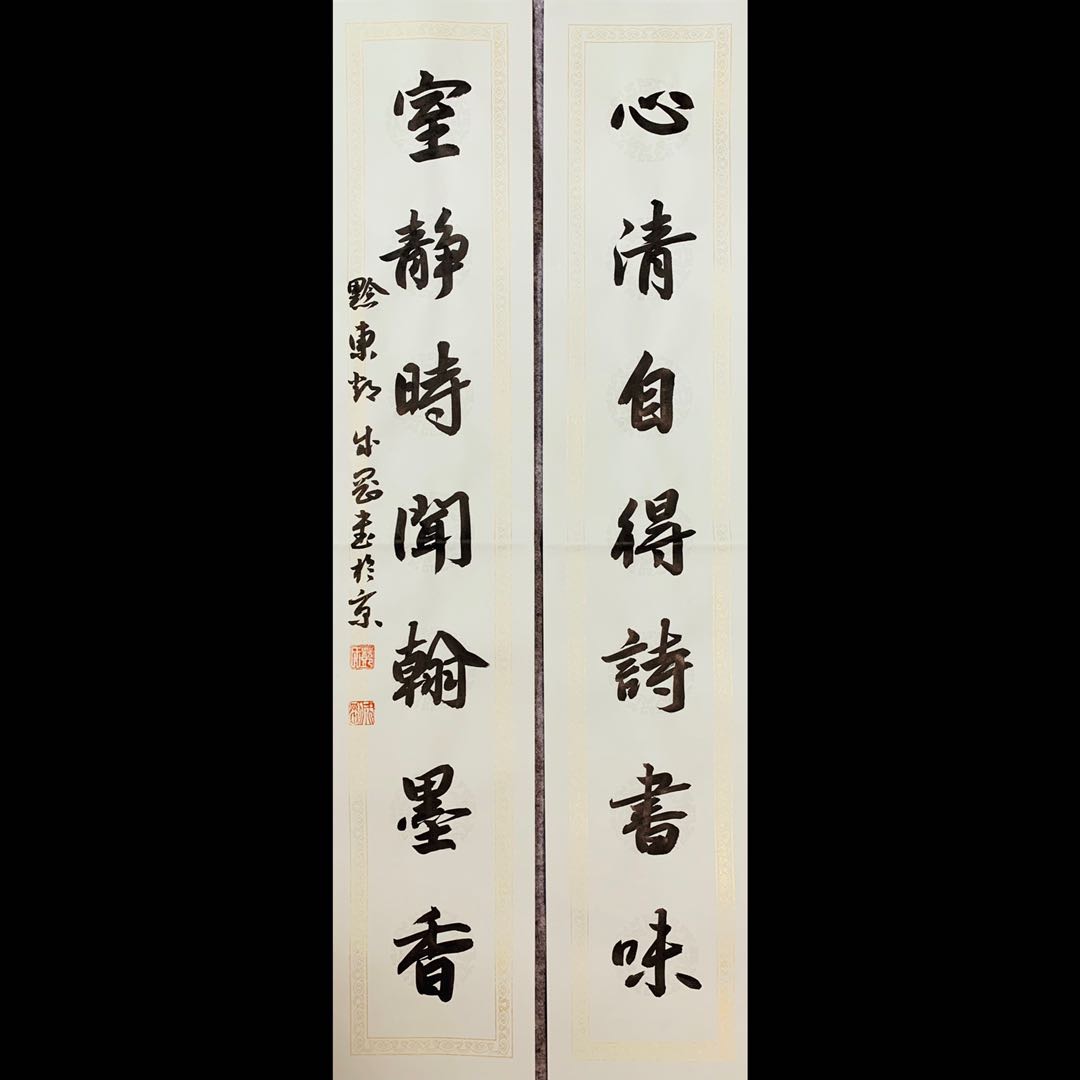 心清自得詩書味
室靜時聞翰墨香
黔東鄧成罡書於京